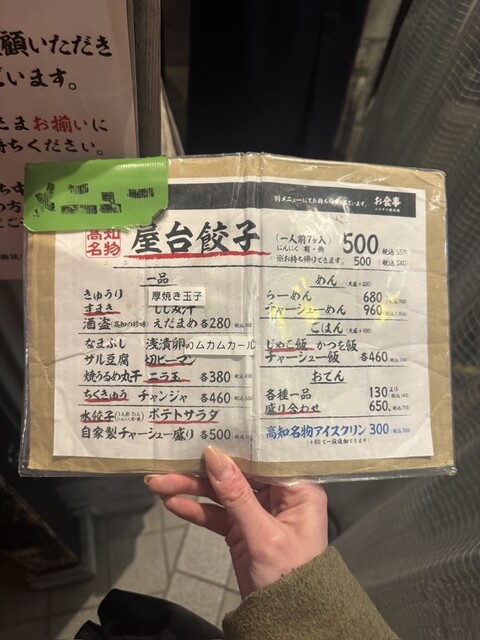 顧いただき
います。
さまお揃いに
待ちください。
メニュー
別メニューにてお持ち帰りございます。
お食事
高知名物
屋台餃子
(一人前7ヶ入)
にんにく 有・無
500
(税込550)
※お持ち帰りできます。 500 (税込540)
一品
きゅうり
厚焼き玉子
すまき
ししみ汁
酒盗(高知の珍味) えだまめ 各280
なまぶし 浅漬 卵のムカムカール
サル豆腐 切ピーマン
焼うるめ丸干 ニラ玉 各380
ちくきゅう チャンジャ 各460
水餃子 ポテトサラダ
自家製チャーシュー盛り 各500
めん(大盛+200)
らーめん 680
チャーシューめん 960
ごはん(大盛+100)
じゃこ飯 かつを飯
チャーシュー飯 各460
おでん
各種一品 130より
盛り合わせ 650
高知名物アイスクリン 300